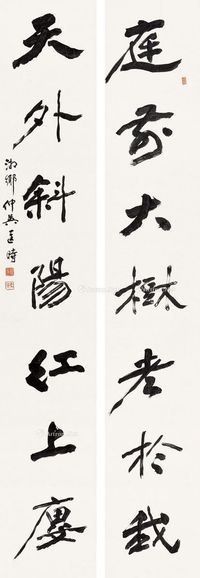 庭前大樹老於我
天外斜陽紅上廔
湘鄉仲興王時